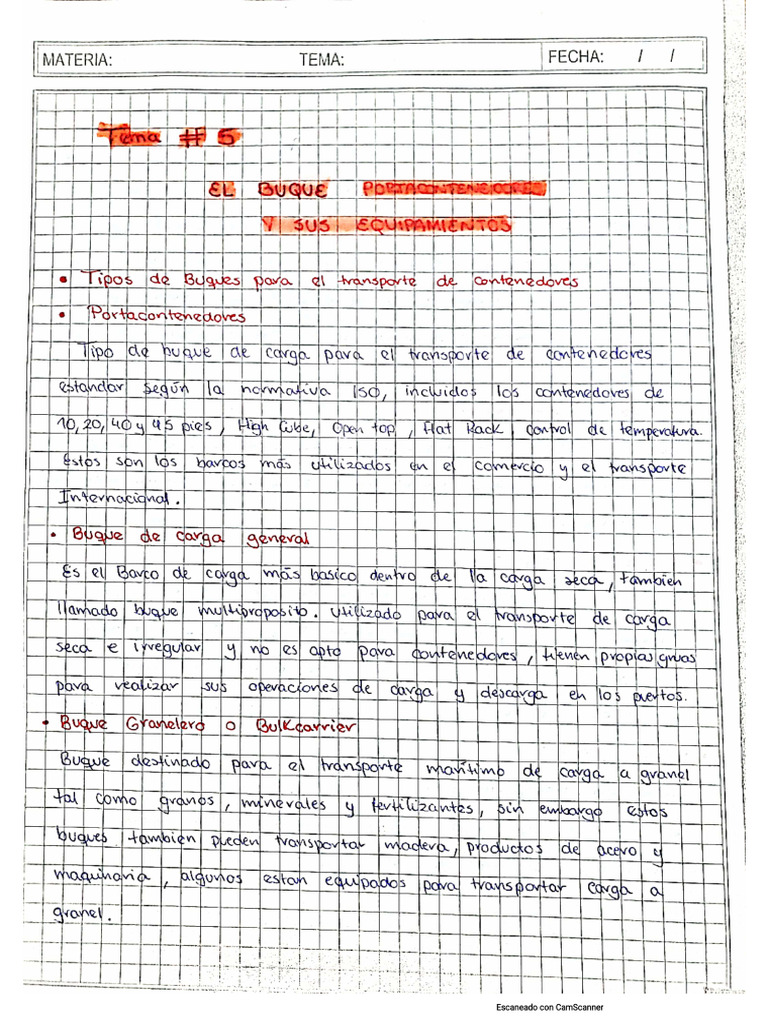 MATERIA: TEMA: FECHA: / /
Tema # 5
EL BUQUE PORTACONTENEDORES
Y SUS EQUIPAMIENTOS
• Tipos de Buques para el transporte de contenedores
• Portacontenedores
Tipo de buque de carga para el transporte de contenedores
estandar según la normativa ISO, incluidos los contenedores de
10, 20, 40 y 45 pies, High Cube, Open top, Flat Rack, control de temperatura.
Estos son los barcos más utilizados en el comercio y el transporte
Internacional.
• Buque de carga general
Es el Barco de carga más basico dentro de la carga seca, tambien
llamado buque multiproposito. Utilizado para el transporte de carga
seca e irregular y no es apto para contenedores, tienen propias gruas
para realizar sus operaciones de carga y descarga en los puertos.
• Buque Granelero o Bulkcarrier
Buque destinado para el transporte marítimo de carga a granel
tal como granos, minerales y fertilizantes, sin embargo estos
buques tambien pueden transportar madera, productos de acero y
maquinaria, algunos estan equipados para transportar carga a
granel.
Escaneado con CamScanner